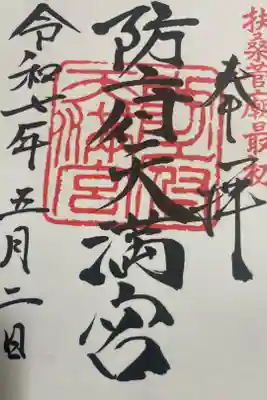 扶桑菅廟最初
奉拝
防府天満宮
令和七年五月二日